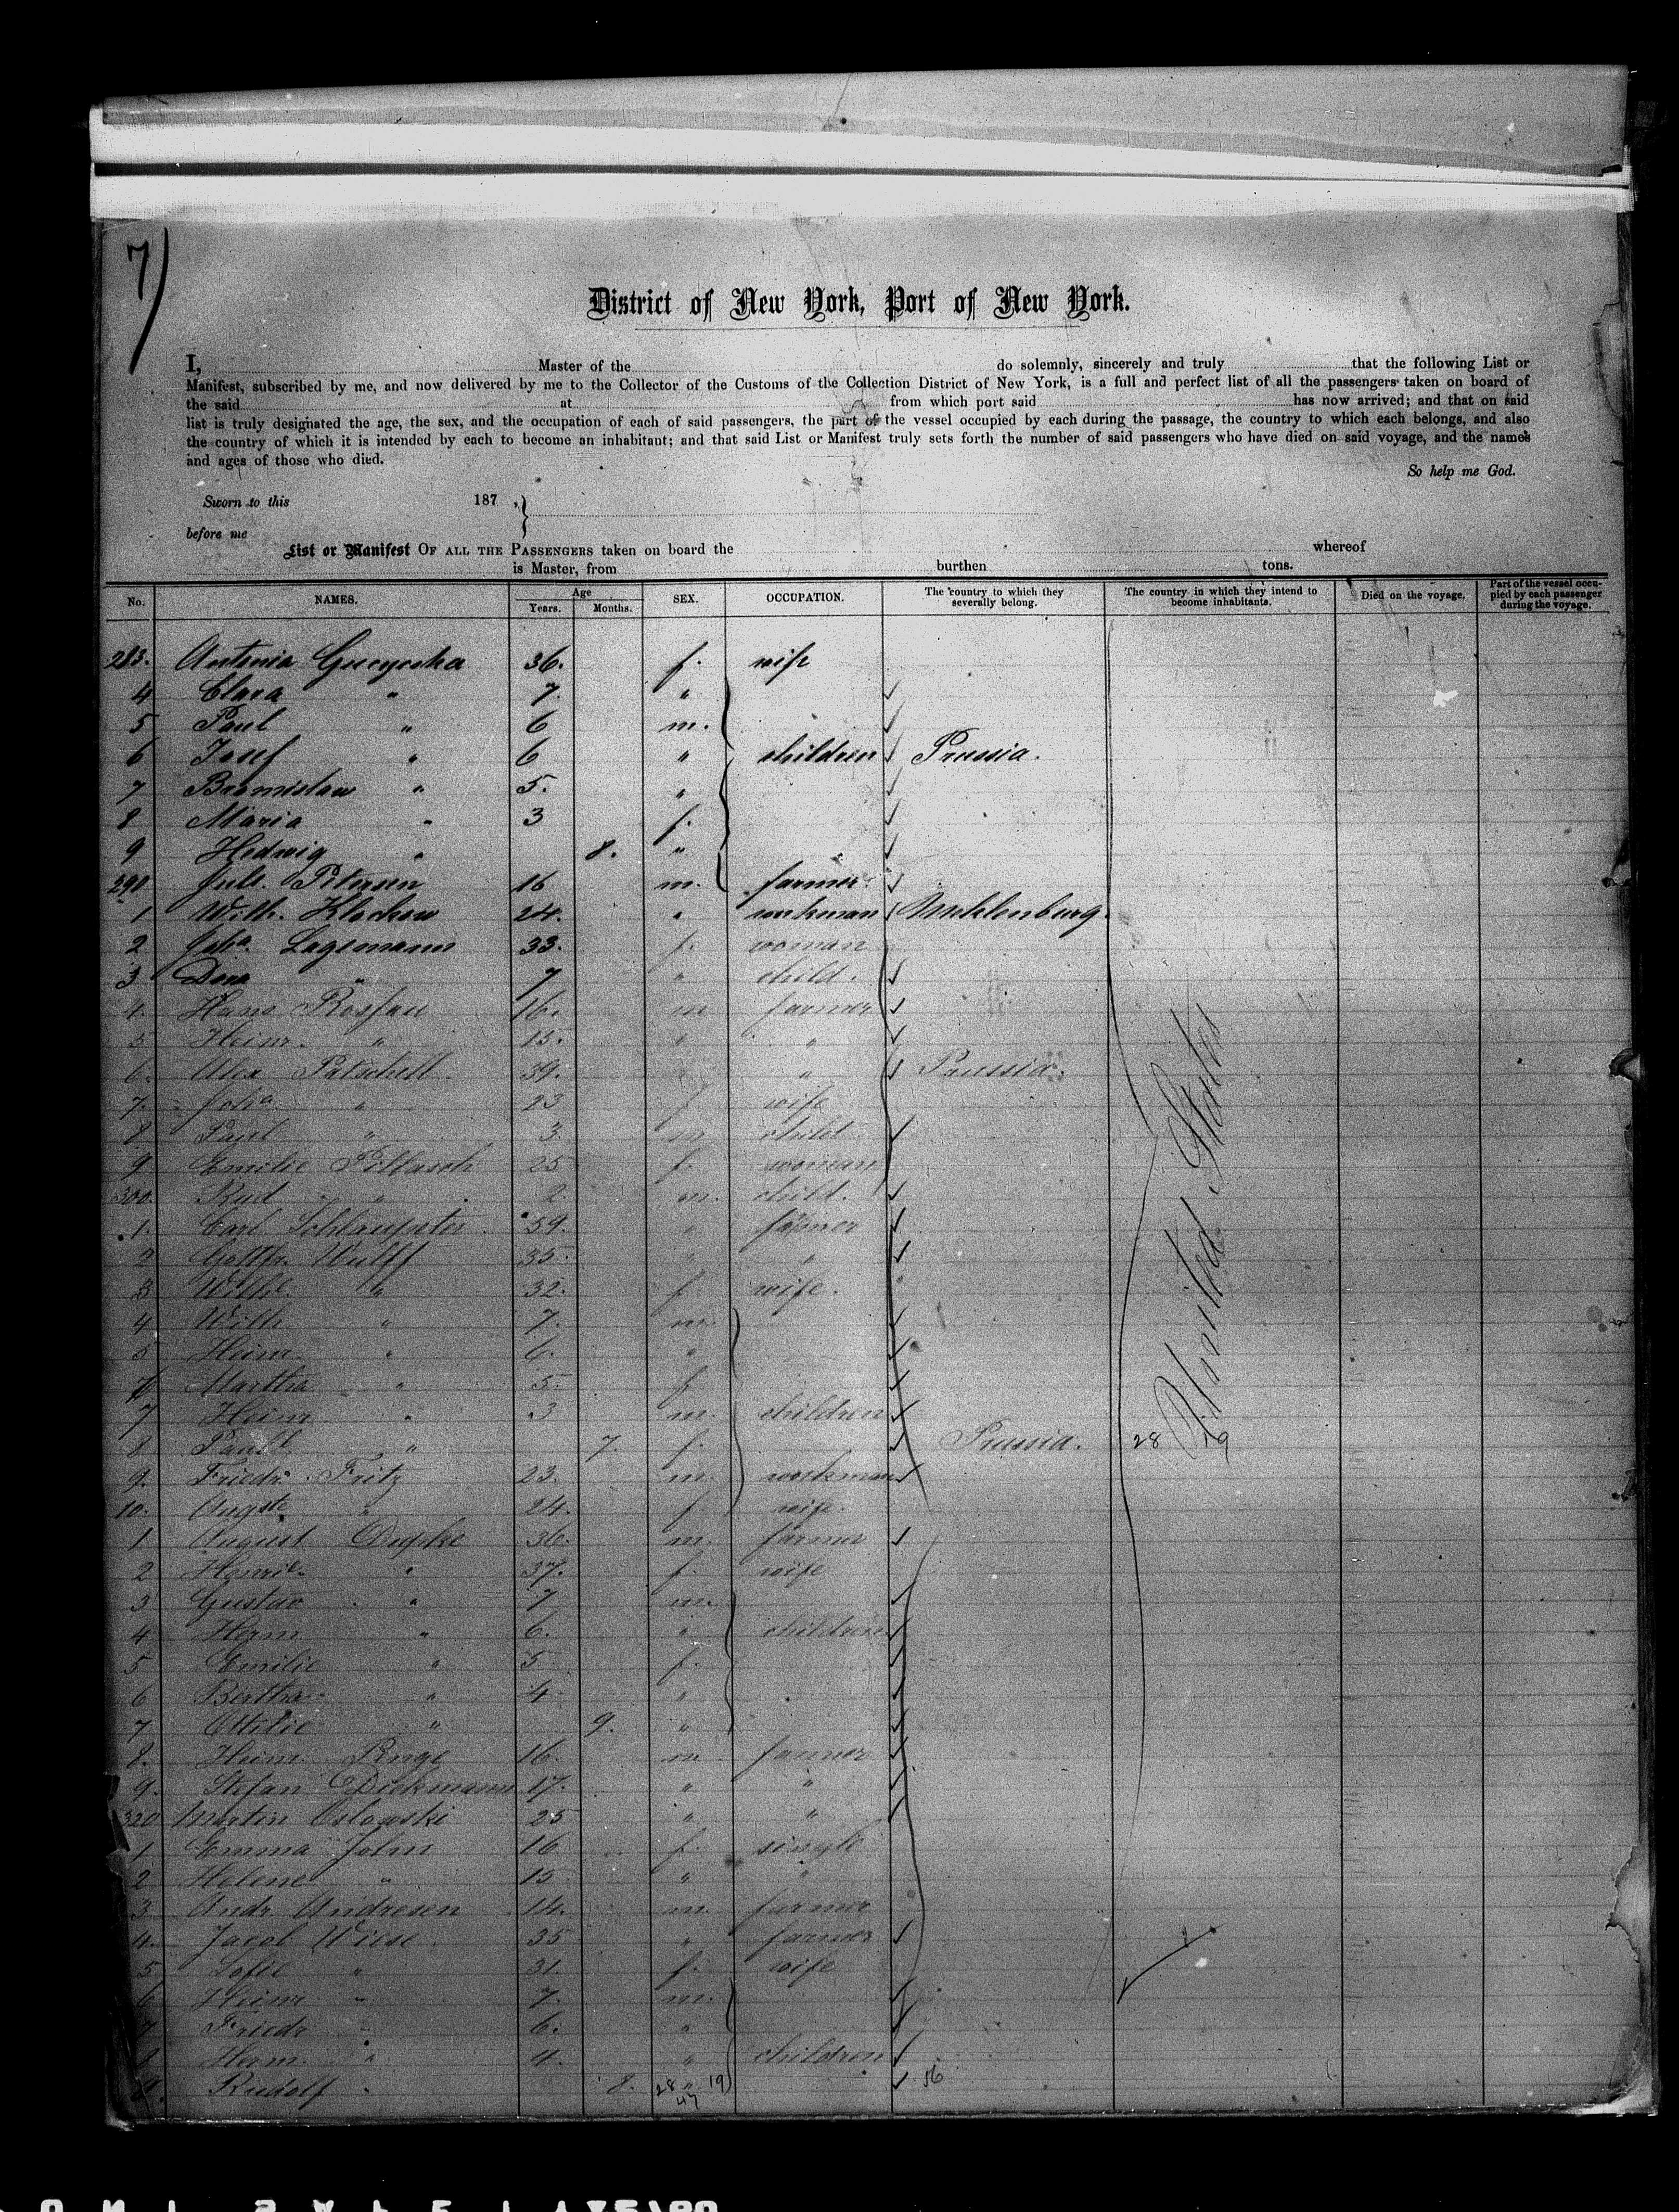 7)
District of New York, Port of New York.
I, Master of the do solemnly, sincerely and truly that the following List or
Manifest, subscribed by me, and now delivered by me to the Collector of the Customs of the Collection District of New York, is a full and perfect list of all the passengers taken on board of
the said at from which port said has now arrived; and that on said
list is truly designated the age, the sex, and the occupation of each of said passengers, the part of the vessel occupied by each during the passage, the country to which each belongs, and also
the country of which it is intended by each to become an inhabitant; and that said List or Manifest truly sets forth the number of said passengers who have died on said voyage, and the names
and ages of those who died.
So help me God.
Sworn to this 187 ,
before me
List or Manifest OF ALL THE PASSENGERS taken on board the whereof
is Master, from burthen tons.
No. NAMES. Age Years. Months. SEX. OCCUPATION. The country to which they severally belong. The country in which they intend to become inhabitants. Died on the voyage. Part of the vessel occupied by each passenger during the voyage.
283. Antonia 36. f. wife
4 Clara " 7. "
5 Paul " 6 m.
6 Josef " 6 " children Prussia.
7 Bronislaw " 5. "
8 Maria " 3 f.
9 Hedwig " 8. "
290 Juls. Petersen 16 m. farmer
1 Wilh. 24. " workman Meklenburg.
2 Joha. Lagemann 33. f. woman
3 Dora " 7 " child.
4. Hans 16. m farmer
5 Heinr. " 15. " "
6. Alex 39. " Prussia.
7. Joha " 23 f wife
8 Paul " 3 m child
9 Emilie 25 f. woman
300. Rud " 2. m. child.
1. Carl 59. " farmer
2 Gottfr. Wulff 35. " "
3 Wilhe. " 32. f wife.
4 Wilh " 7. m.
5 Heinr. " 6. "
6 Martha " 5. f
7 Heinr " 3 m. children
8 " 7. f. Prussia. 28 19
United States
9. Friedr. Fritz 23. m. workman
10. Auguste " 24. f wife.
1 August 36. m. farmer
2 Henrie. " 37. f. wife
3 Gustav " 7 m.
4 Herm " 6. " children
5 Emilie " 5 f.
6 Bertha " 4 "
7 Ottilie " 9. "
8. Heinr. 16. m farmer
9. Stefan Dickmann 17. " "
320 Martin Oslowski 25 " "
1 Emma John 16 f. single
2 Helene " 15 " "
3 Andr. Andresen 14. m. farmer
4. Jacob Wiese 35 " farmer
5 Sofie " 31. f. wife
6 Heinr " 7. m.
7 Friedr " 6. "
8 Herm. " 4. " children
9. Rudolf " 8. 28 " 19 56
47